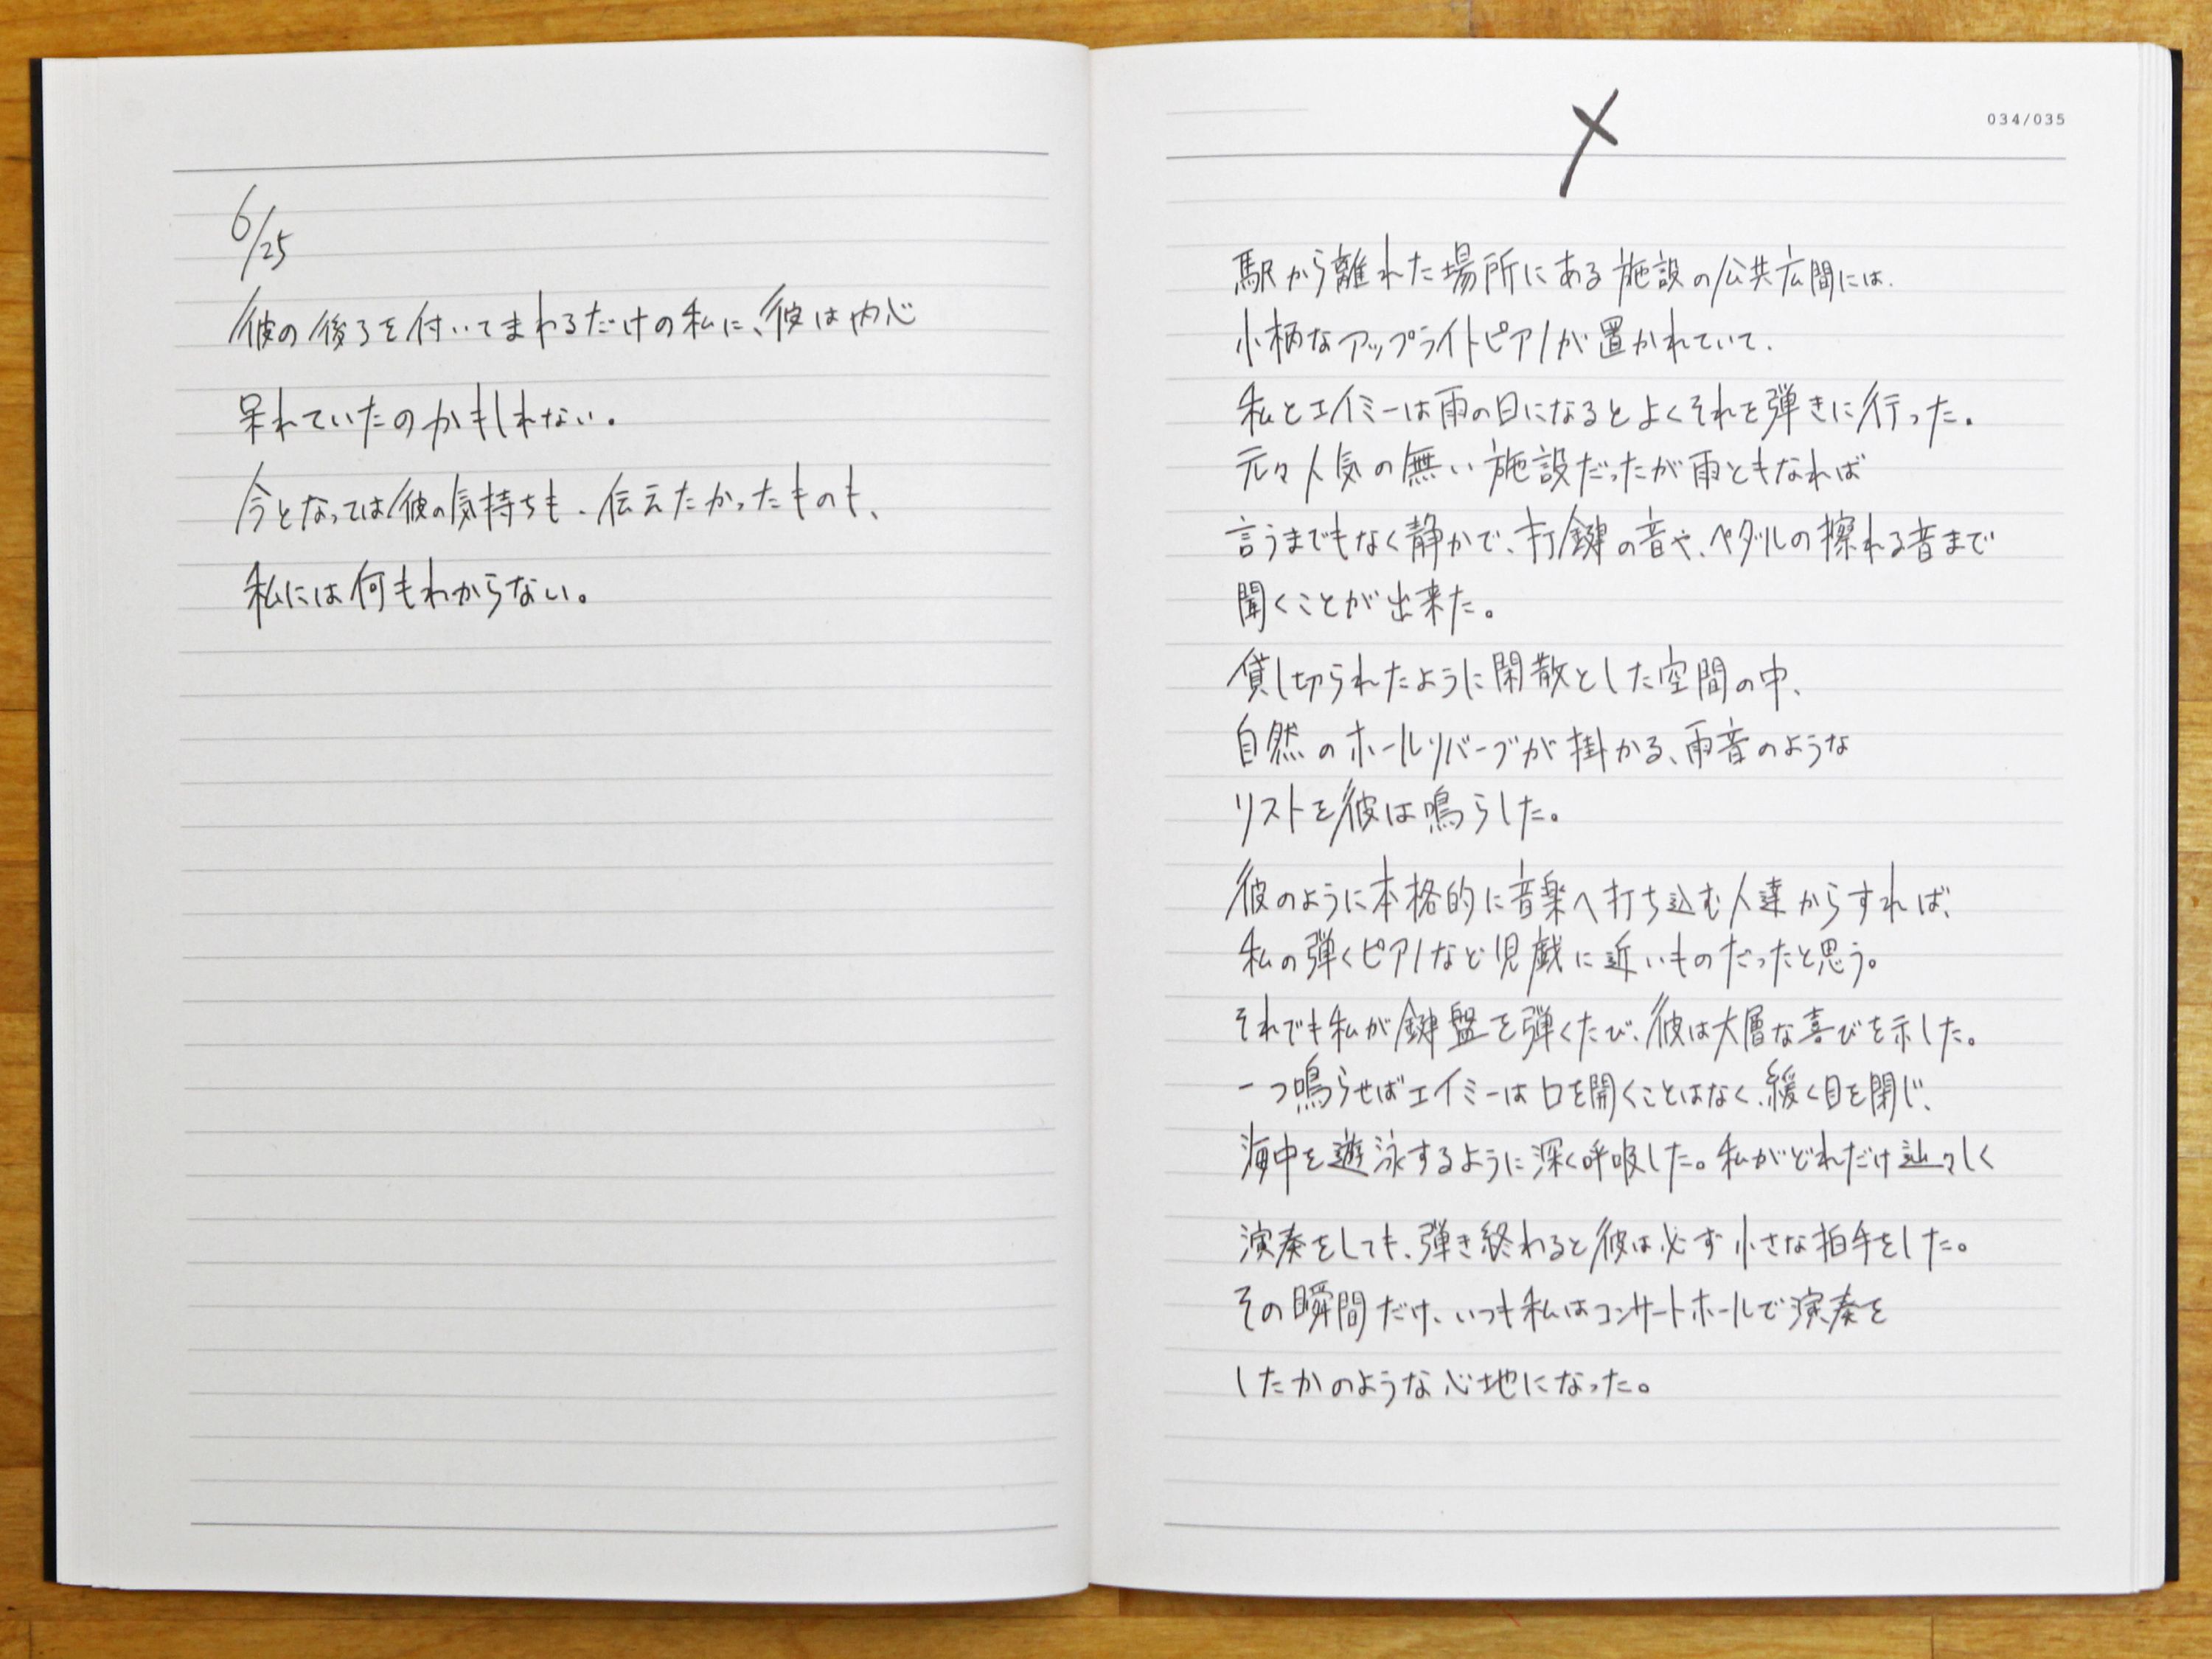 6/25
彼の後ろを付いてまわるだけの私に、彼は内心
呆れていたのかもしれない。
今となっては彼の気持ちも、伝えたかったものも、
私には何もわからない。
034/035
駅から離れた場所にある施設の公共広間には、
小柄なアップライトピアノが置かれていて、
私とエイミーは雨の日になるとよくそれを弾きに行った。
元々人気の無い施設だったが雨ともなれば
言うまでもなく静かで、打鍵の音や、ペダルの擦れる音まで
聞くことが出来た。
貸し切られたように閑散とした空間の中、
自然のホールリバーブが掛かる、雨音のような
リストを彼は鳴らした。
彼のように本格的に音楽へ打ち込む人達からすれば、
私の弾くピアノなど児戯に近いものだったと思う。
それでも私が鍵盤を弾くたび、彼は大層な喜びを示した。
一つ鳴らせばエイミーは口を開くことはなく、緩く目を閉じ、
海中を遊泳するように深く呼吸した。私がどれだけ辿々しく
演奏をしても、弾き終わると彼は必ず小さな拍手をした。
その瞬間だけ、いつも私はコンサートホールで演奏を
したかのような心地になった。